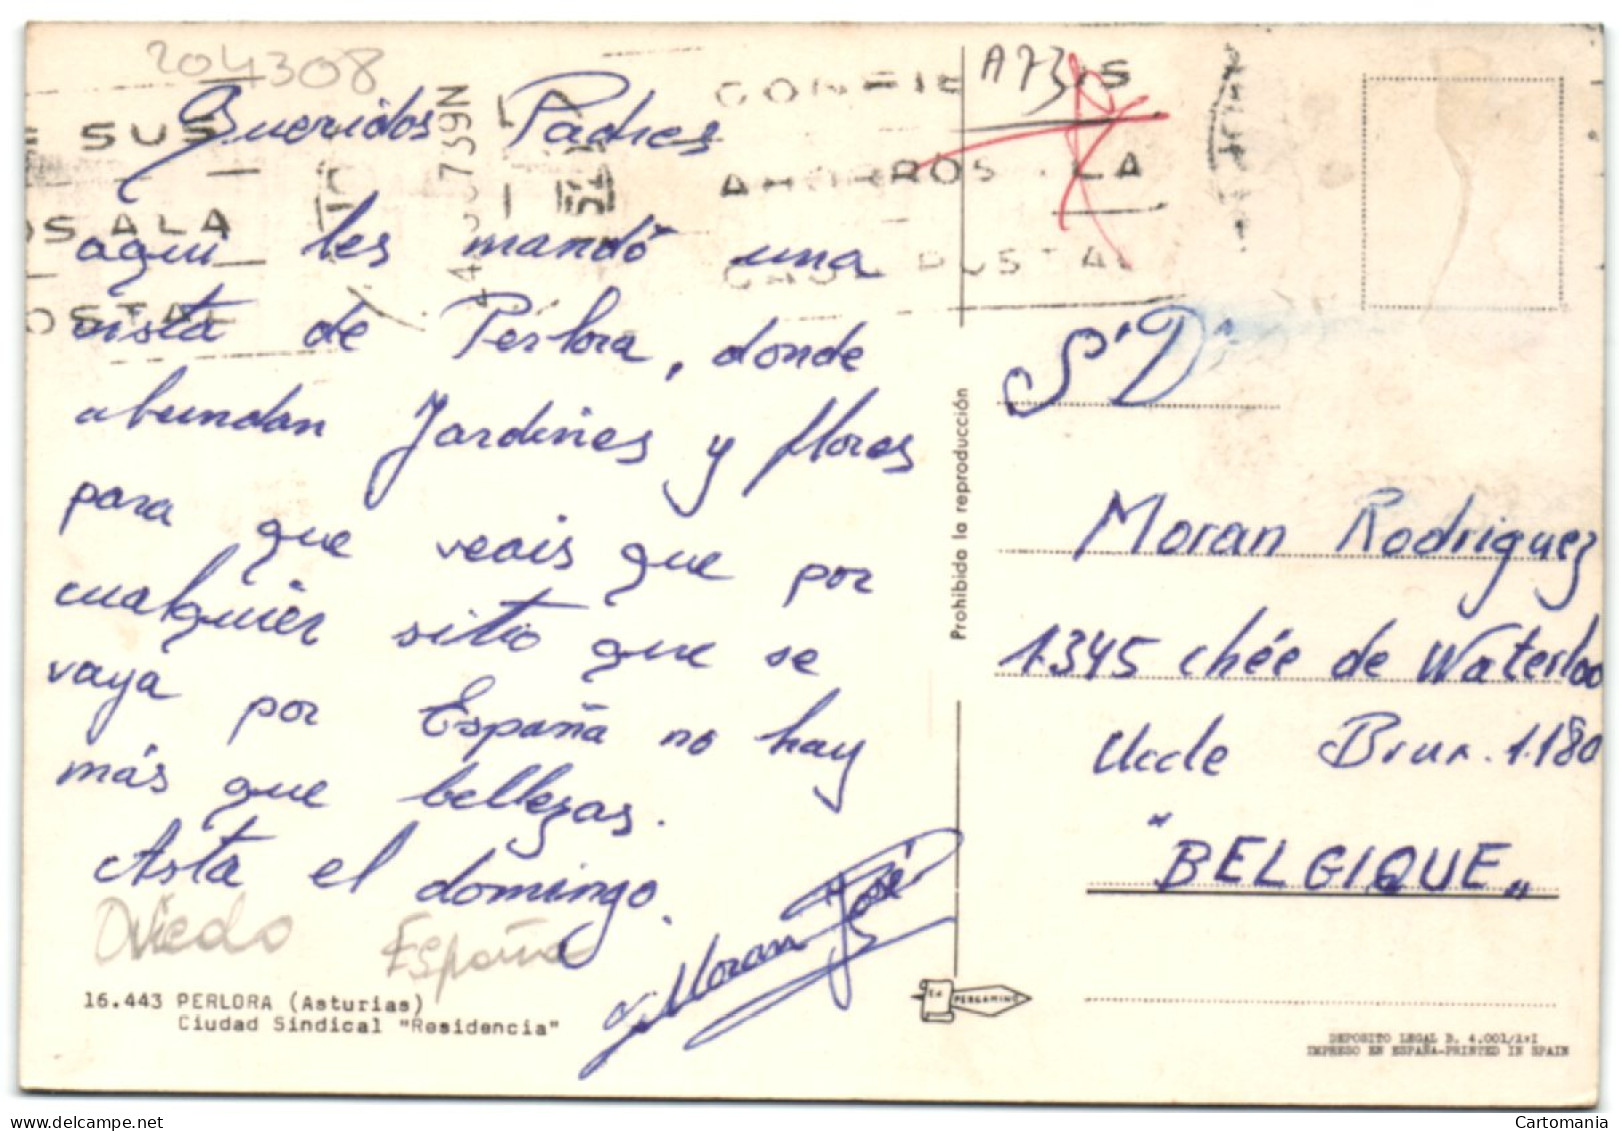 204308
Queridos Padres
aqui les mandó una
vista de Perlora, donde
abundan Jardines y flores
para que veais que por
cualquier sitio que se
vaya por España no hay
más que bellezas.
Asta el domingo.
Moran José
Oviedo España
16.443 PERLORA (Asturias)
Ciudad Sindical "Residencia"
E SUS
OS A LA
OSTAL
CONFIE SUS
AHORROS A LA
CAJA POSTAL
A73
Prohibida la reproducción
Ed. PERGAMINO
S.D.
Moran Rodriguez
1345 chée de Waterloo
Uccle Brux. 1.180
"BELGIQUE"
DEPOSITO LEGAL B. 4.001/XVI
IMPRESO EN ESPAÑA-PRINTED IN SPAIN
delcampe.net
Cartomania